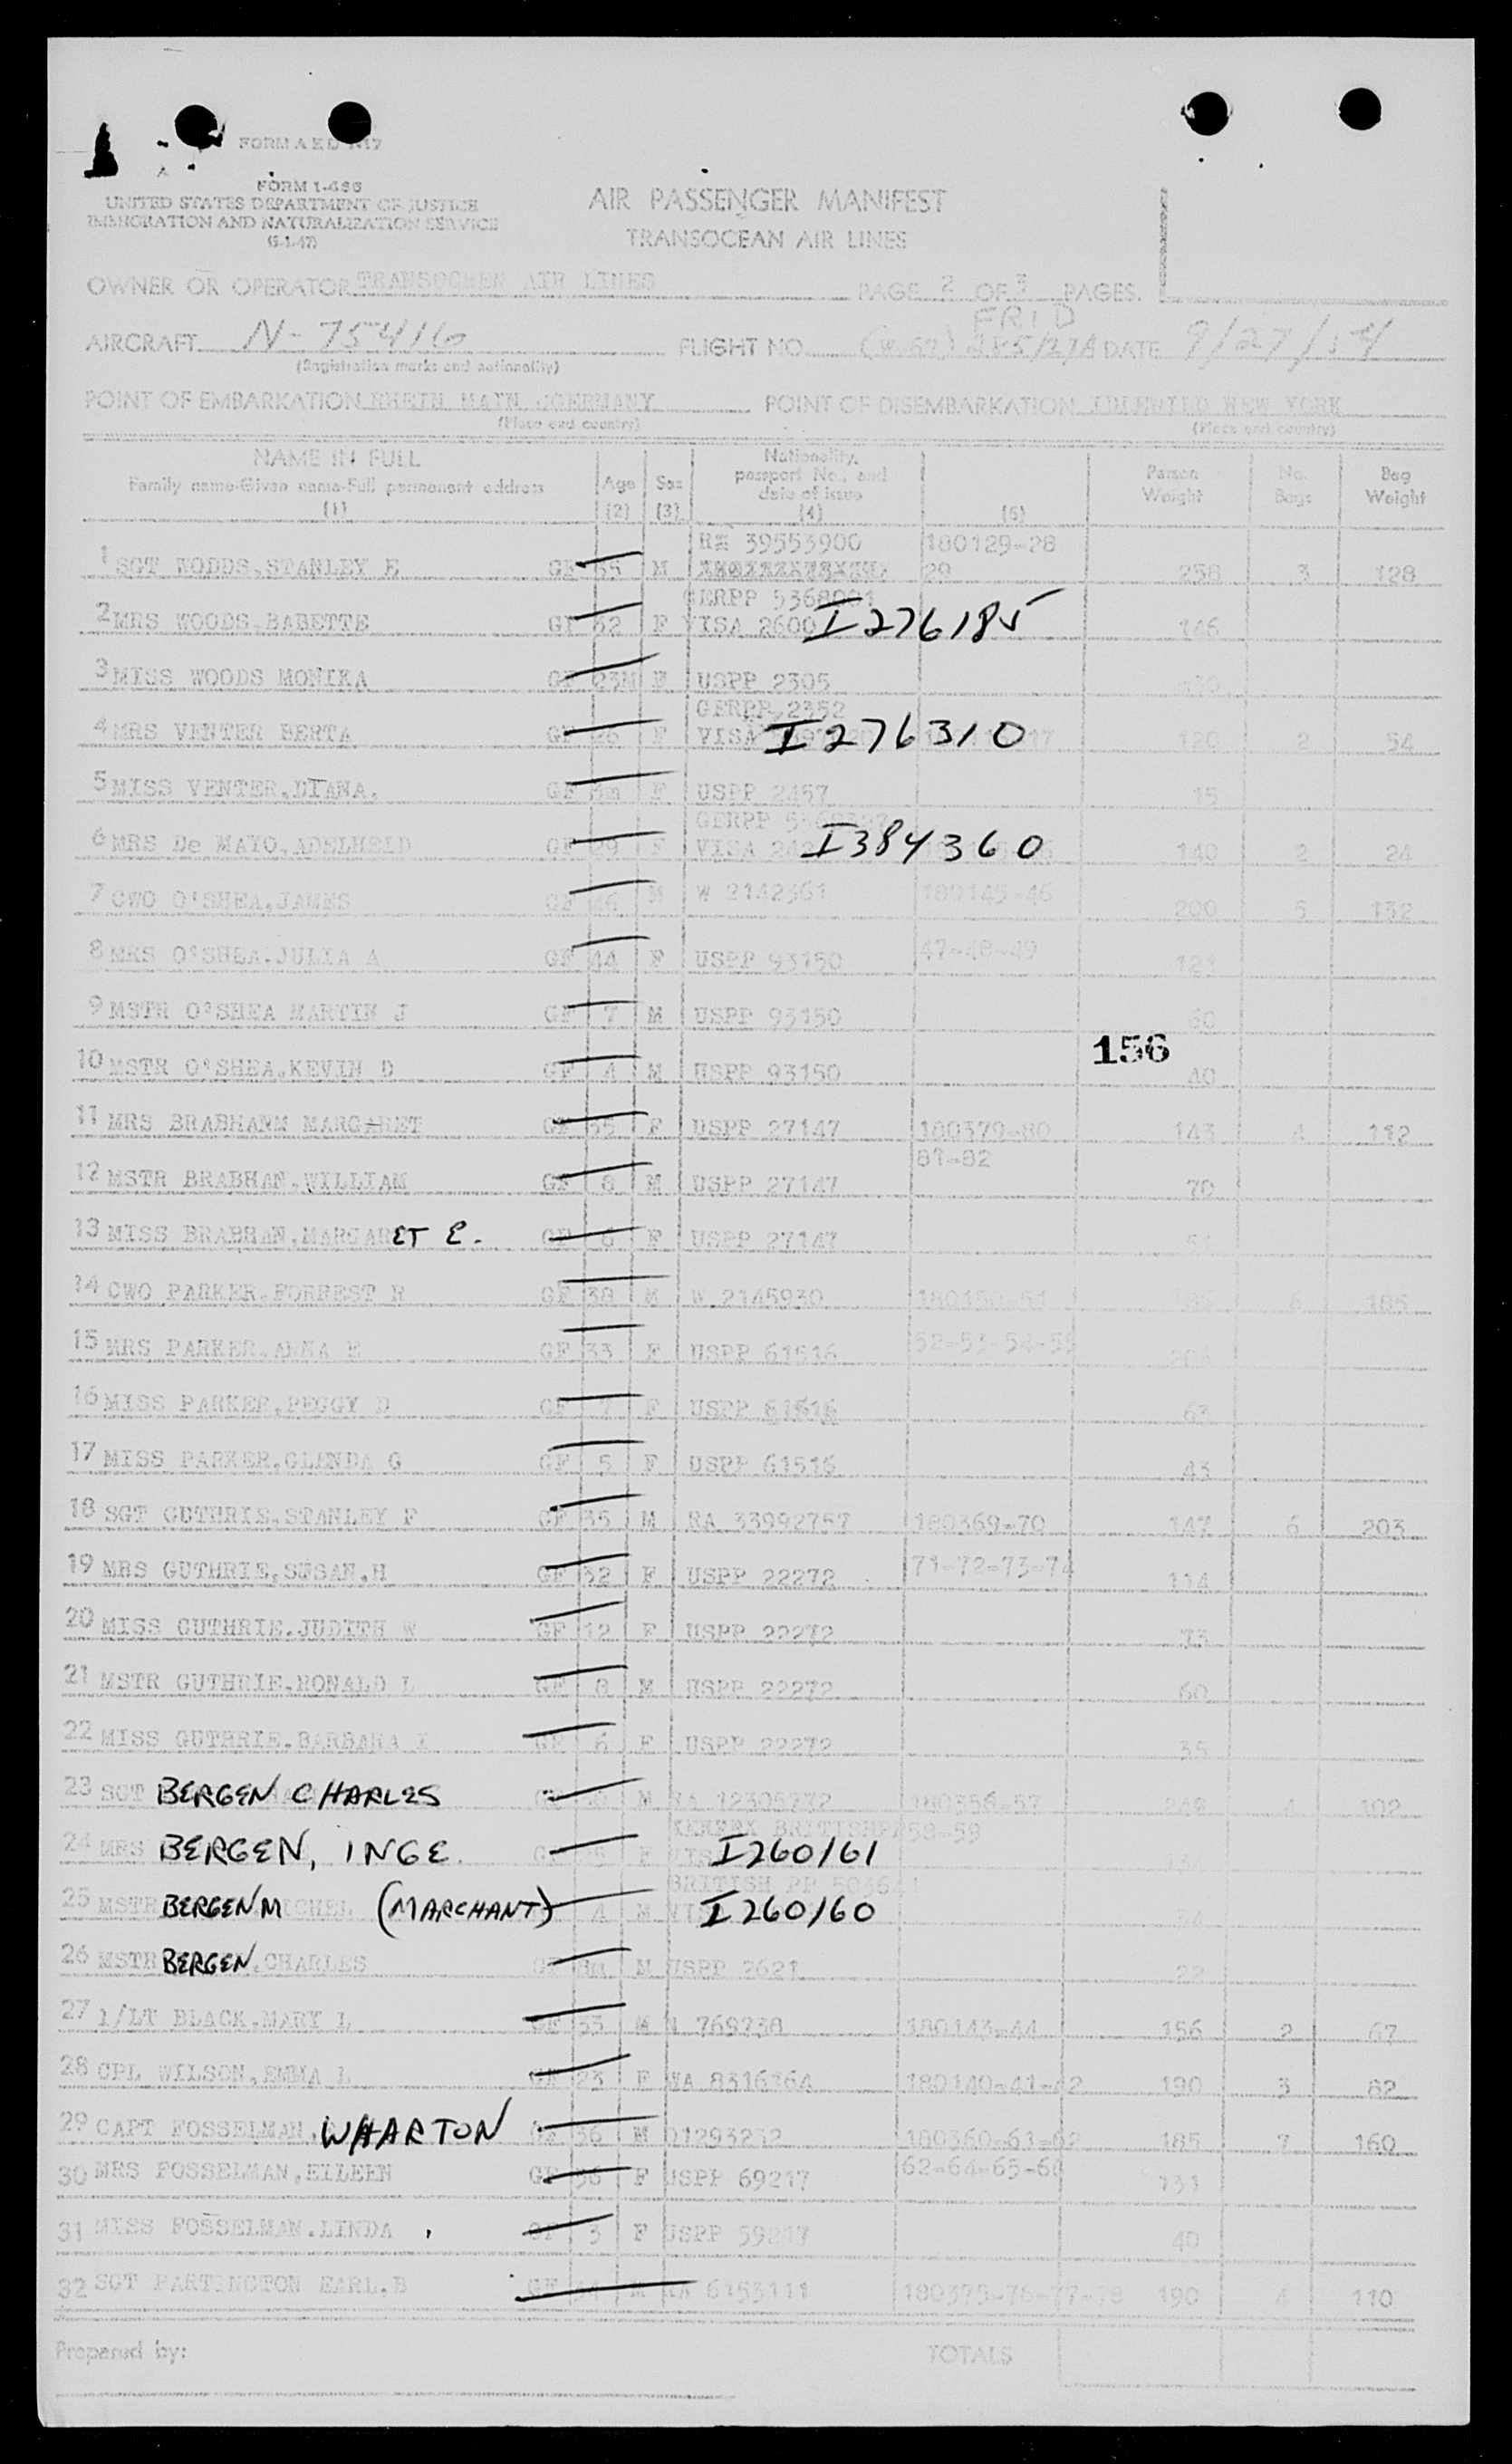 FORM I-466
UNITED STATES DEPARTMENT OF JUSTICE
IMMIGRATION AND NATURALIZATION SERVICE
(5-1-47)
AIR PASSENGER MANIFEST
TRANSOCEAN AIR LINES
OWNER OR OPERATOR TRANSOCEAN AIR LINES PAGE 2 OF 3 PAGES
AIRCRAFT N-75416 FLIGHT NO. DATE 9/27/54
(Registration marks and nationality)
POINT OF EMBARKATION RHEIN MAIN GERMANY POINT OF DISEMBARKATION IDLEWILD NEW YORK
(Place and country) (Place and country)
NAME IN FULL Age Sex Nationality, passport No., and date of issue Person Weight No. Bags Bag Weight
Family name-Given name-Full permanent address
(1) (2) (3) (4) (5)
39553900 180129-28
1 SGT WOODS, STANLEY E GF 35 M 29 3 128
GERPP
2 MRS WOODS, BABETTE GF 32 F VISA 2600 I276185 146
3 MISS WOODS MONIKA GF 23M F USPP 2305
GERPP 2352
4 MRS VENTER BERTA GF 26 F VISA I276310 120 2 54
5 MISS VENTER, DIANA. GF F USPP 2457 15
GERPP
6 MRS De MAYO, ADELHEID GF 29 F VISA I384360 140 2 24
7 CWO O'SHEA, JAMES GF 46 M W 2142961 180145-46 200 5 132
8 MRS O'SHEA, JULIA A GF 44 F USPP 93150 47-48-49 121
9 MSTR O'SHEA MARTIN J GF 7 M USPP 93150 60
156
10 MSTR O'SHEA, KEVIN D GF 4 M USPP 93150 40
11 MRS BRABHANM MARGARET GF 35 F USPP 27147 180379-80 143 4 112
12 MSTR BRABHAN, WILLIAM GF 8 M USPP 27147 81-82 70
13 MISS BRABHAN, MARGARET E. GF 6 F USPP 27147 51
14 CWO PARKER, FORREST H GF 38 M W 2145930 185
15 MRS PARKER, ANNA E GF 33 F USPP 61516 52-53-54-55
16 MISS PARKER, PEGGY D GF 7 F USPP 61516 63
17 MISS PARKER, GLENDA G GF 5 F USPP 61516 43
18 SGT GUTHRIE, STANLEY F GF 35 M RA 33992757 180369-70 147 6 203
19 MRS GUTHRIE, SUSAN, H GF 32 F USPP 22272 71-72-73-74 114
20 MISS GUTHRIE, JUDITH W GF 12 F USPP 22272 73
21 MSTR GUTHRIE, RONALD L GF 8 M USPP 22272 60
22 MISS GUTHRIE, BARBARA GF 6 F USPP 22272 35
23 SGT BERGEN CHARLES M RA 12305772 180356-57 102
BRITISHPP 58-59
24 MRS BERGEN, INGE. F I260161
BRITISH PP
25 MSTR BERGEN M (MARCHANT) 4 M I260160
26 MSTR BERGEN, CHARLES M USPP 2621 22
27 1/LT BLACK, MARY L GF 33 M N 769738 180143-44 156 2 67
28 CPL WILSON, EMMA L GF 23 F WA 180140-41-42 190 3 62
29 CAPT FOSSELMAN, WHARTON GF 36 M 01293232 180360-61-62 185 7 160
30 MRS FOSSELMAN, EILEEN GF 36 F USPP 69217 131
31 MISS FOSSELMAN, LINDA GF 3 F USPP 40
32 SGT PARTINGTON EARL, B GF M RA 6153111 180375-76-77-78 190 4 110
Prepared by: TOTALS